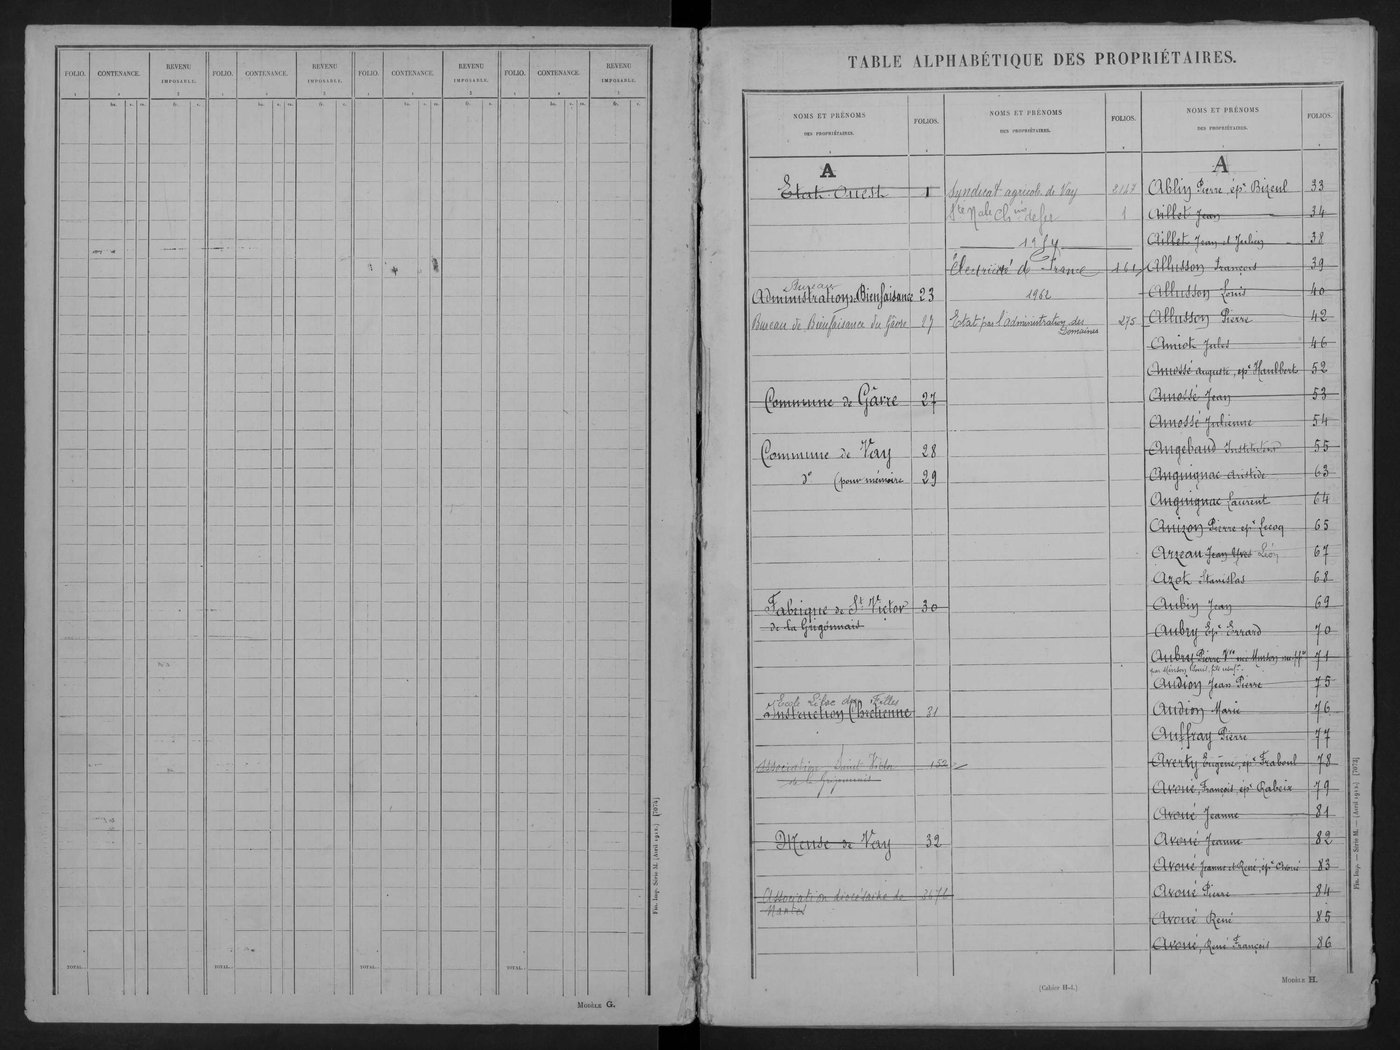 FOLIO. CONTENANCE. REVENU IMPOSABLE. FOLIO. CONTENANCE. REVENU IMPOSABLE. FOLIO. CONTENANCE. REVENU IMPOSABLE. FOLIO. CONTENANCE. REVENU IMPOSABLE.
1 2 3 1 2 3 1 2 3 1 2 3
ha. a. ca. fr. c. ha. a. ca. fr. c. ha. a. ca. fr. c. ha. a. ca. fr. c.
TOTAL. TOTAL. TOTAL. TOTAL.
Fin. Imp. Série M. (Avril 1912.) [7074]
MODÈLE G.
TABLE ALPHABÉTIQUE DES PROPRIÉTAIRES.
NOMS ET PRÉNOMS DES PROPRIÉTAIRES. FOLIOS. NOMS ET PRÉNOMS DES PROPRIÉTAIRES. FOLIOS. NOMS ET PRÉNOMS DES PROPRIÉTAIRES. FOLIOS.
A
Etat Ouest 1
Bureau
Administration Bienfaisance 23
Bureau de Bienfaisance du Gâvre 87
Commune de Gâvre 27
Commune de Vay 28
do (pour mémoire 29
Fabrique de St Victor 30
de la Grigonnais
Ecole Libre des Filles
Instruction Chrétienne 31
Association Saint Victor 152
de la Grigonnais
Mense de Vay 32
Association diocésaine de 3676
Nantes
Syndicat agricole de Vay 2147
Sté Nale Chins de fer 1
1954
Électricité de France 161
1962
Etat par l'administration des 275
Domaines
A
Ablin Pierre, ép. Bizeul 33
Aillet Jean 34
Aillet Jean et Julien 38
Allusson François 39
Allusson Louis 40
Allusson Pierre 42
Amiot Jules 46
Amossé Auguste, ép. Haulbert 52
Amossé Jean 53
Amossé Julienne 54
Angebaud Instituteur 55
Anguignac Aristide 63
Anguignac Laurent 64
Anizon Pierre ép. Lecoq 65
Arzeau Jean Yves Léon 67
Azot Stanislas 68
Aubin Jean 69
Aubry Ep. Errard 70
Aubry Pierre Vve née Minson 71
Audion Jean Pierre 75
Audion Marie 76
Auffray Pierre 77
Averty Eugène, ép. Fraboul 78
Avoué, François, ép. Rabeix 79
Avoué Jeanne 81
Avoué Jeanne 82
Avoué Jeanne et René, ép. Avoué 83
Avoué Pierre 84
Avoué René 85
Avoué, René François 86
Fin. Imp. — Série M. — (Avril 1912.) [7073]
(Cahier H-1.)
MODÈLE H.